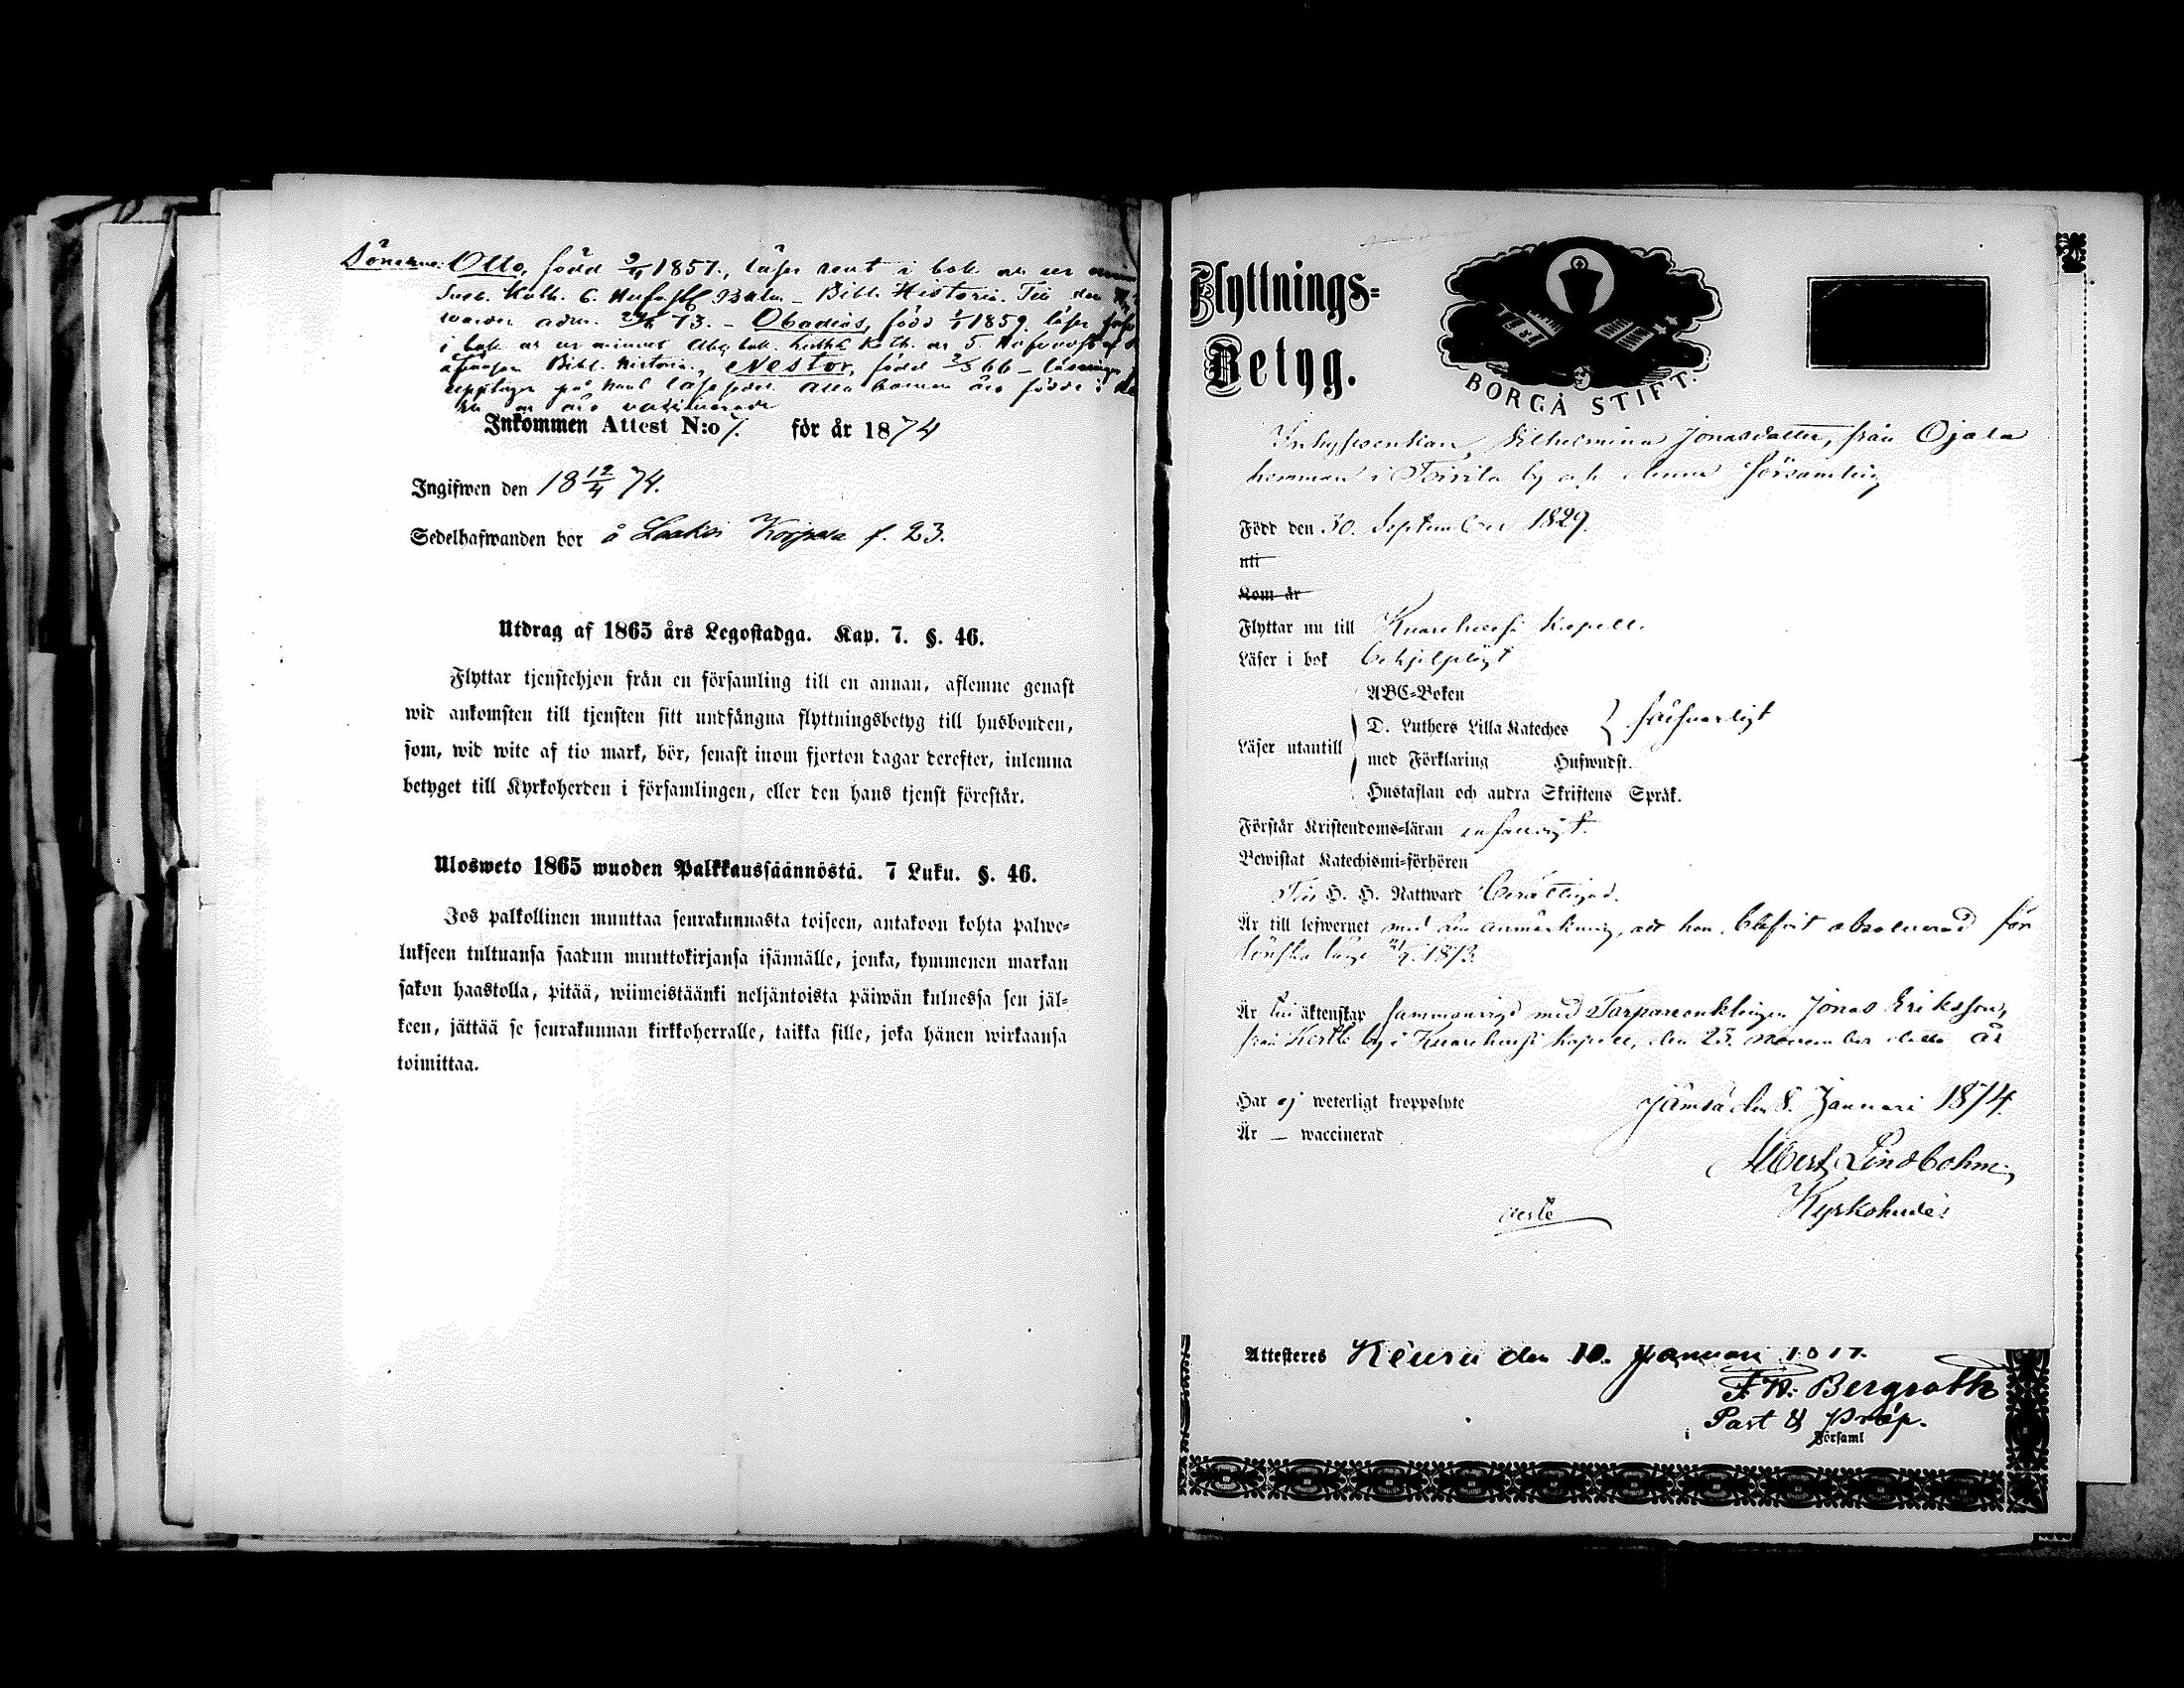 Sönerne: Otto, född 9/4 1857, läser rent i bok
Bibl. Historia. Till
adm. 73. – Obadias, född 1/1 1859. läser
i bok
Bibl. historia., Nestor, född 2/3 66 –
alla barnen äro födde i
äro vaccinerade
Inkommen Attest N:o 7. för år 1874
Ingifwen den 18 12/4 74.
Sedelhafwanden bor å Korpela f. 23.
Utdrag af 1865 års Legostadga. Kap. 7. §. 46.
Flyttar tjenstehjon från en församling till en annan, aflemne genast
wid ankomsten till tjensten sitt undfångna flyttningsbetyg till husbonden,
som, wid wite af tio mark, bör, senast inom fjorton dagar derefter, inlemna
betyget till Kyrkoherden i församlingen, eller den hans tjenst förestår.
Ulosweto 1865 wuoden Palkkaussäännöstä. 7 Luku. §. 46.
Jos palkollinen muuttaa seurakunnasta toiseen, antakoon kohta palwe-
lukseen tultuansa saadun muuttokirjansa isännälle, jonka, kymmenen markan
sakon haastolla, pitää, wiimeistäänki neljäntoista päiwän kuluessa sen jäl-
keen, jättää se seurakunnan kirkkoherralle, taikka sille, joka hänen wirkaansa
toimittaa.
Flyttnings-
Betyg.
BORGÅ STIFT.
Inhysesenkan, Vilhelmina Jonasdotter, från Ojala
hemman i by och denna församling
Född den 30. September 1829.
uti
Kom år
Flyttar nu till Kuorehvesi Kapell.
Läser i bok behjelpligt
ABC-Boken
D. Luthers Lilla Kateches } försvarligt
Läser utantill
med Förklaring Hufwudst.
Hustaflan och andra Skriftens Språk.
Förstår Kristendoms-läran enfaldigt.
Bewistat Katechismi-förhören
Till H. H. Nattward berättigad.
Är till lefwernet med den anmärkning, att hon blifvit absolverad för
lönska läge 21/9 1873.
Är till äktenskap sammanvigd med Torpareenklingen Jonas Eriksson,
från Kertte by i Kuorehvesi kapell, den 23. november detta år
Har ej weterligt kroppslyte
Jämsä den 8. Januari 1874.
Är – waccinerad
Albert Lindbohm
Kyrkoherde
Attesteres Keuru den 10. Januari
F. W. Bergroth
Past & Prep.
i Församl